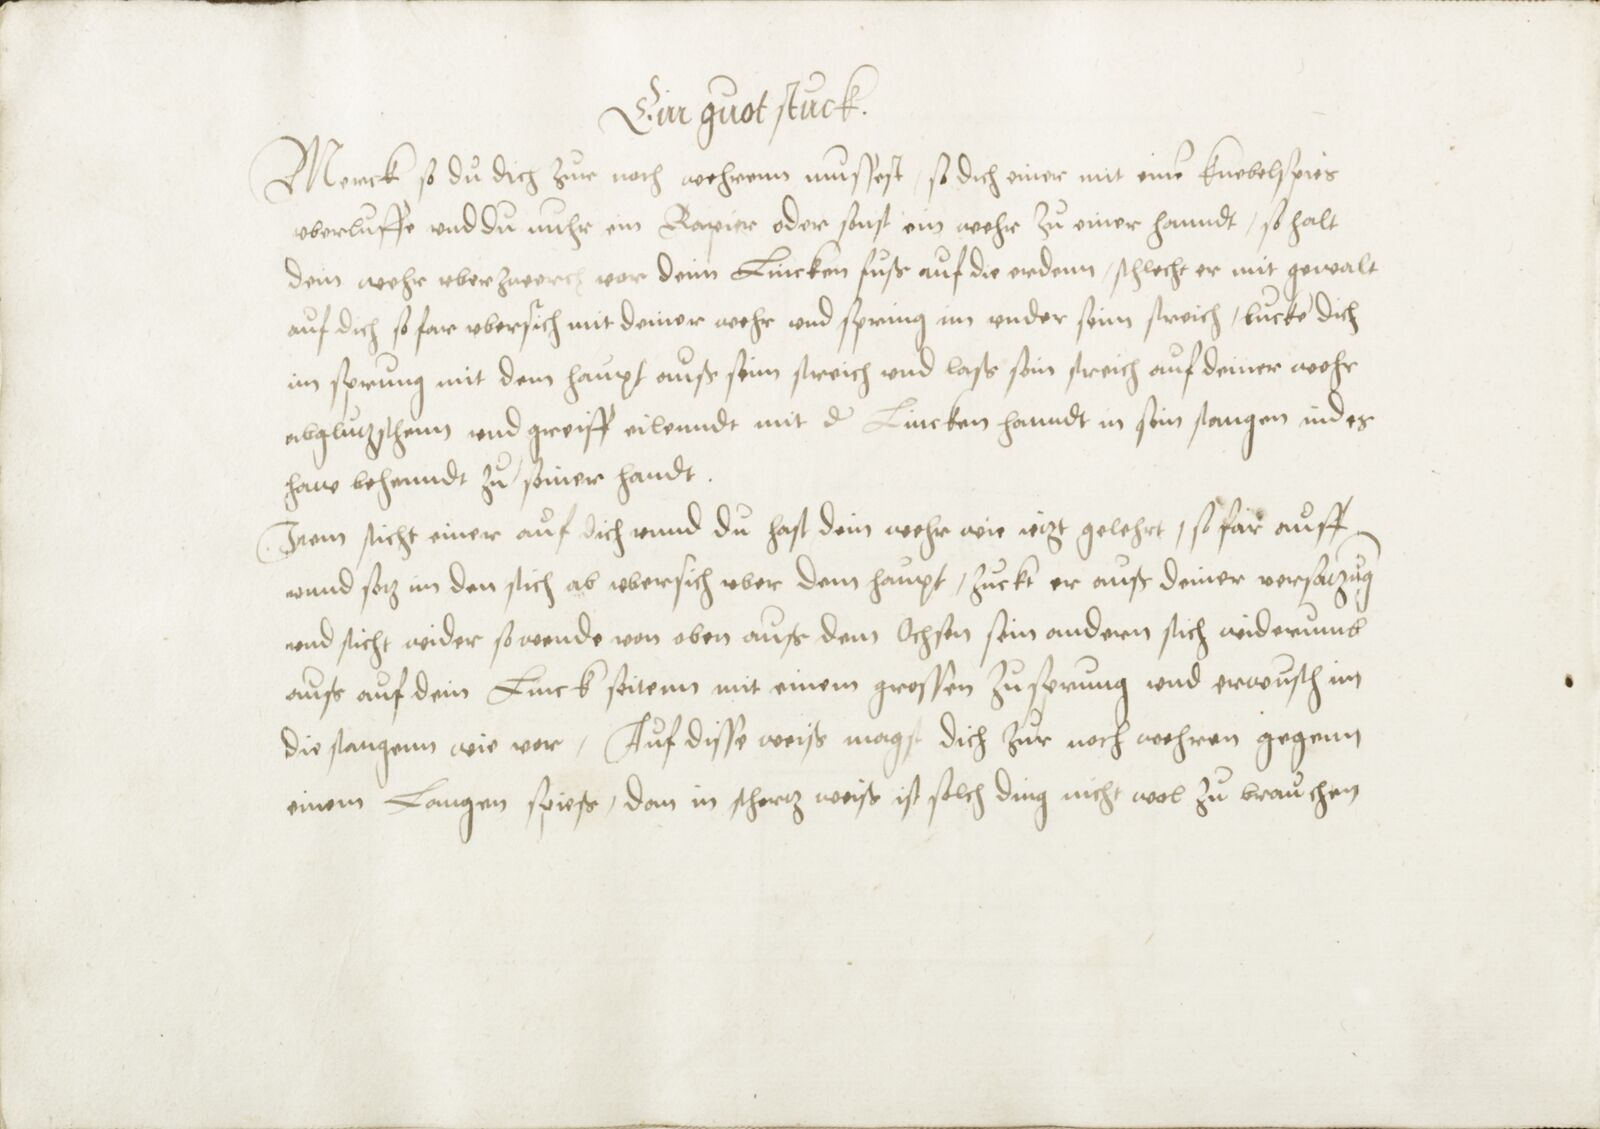 Ein guot stuck.
Merck so du dich zur noch wehrenn mussest / so dich einer mit eim̄ knebelspies
vberluffe vnd du nuhr ein Rapier oder sonst ein wehr zu einer hanndt / so halt
dein wehr vberzwerch vor deim Lincken fuß auf die erdenn / schlecht er mit gewalt
auf dich so far vbersich mit deiner wehr vnd spring im vnder seim streich / bucke dich
im sprung mit dem haupt auß seim streich vnd laß sein streich auf deiner wehr
abglutzschenn vnd greiff eilenndt mit d' Lincken hanndt in sein stangen indes
haw behenndt zu seiner handt.
Item sticht einer auf dich vnnd du hast dein wehr wie ietzt gelehrt / so far auff
vnnd setz im den stich ab vbersich vber dem haupt / zuckt er auß deiner versatzūg
vnd sticht wider so wende von oben auß dem Ochsen sein andern stich widerumb
auß auf dein Linck seitenn mit einem grossen zusprung vnd erwusch im
die stangenn wie vor / Auf disse weiß magst dich zur noch wehren gegenn
einem Langen spieß / dan in schertz weiß ist solch ding nicht wol zu brauchen